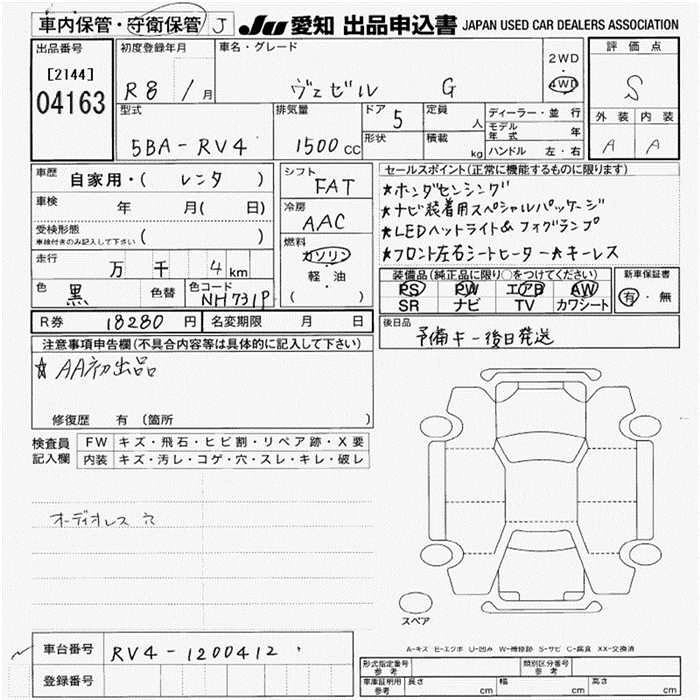 車内保管・守衛保管 J JU 愛知 出品申込書 JAPAN USED CAR DEALERS ASSOCIATION
出品番号 [2144] 04163
初度登録年月 R8 / 1月
車名・グレード ヴェゼル G
2WD 4WD
評価点 S
外装 内装
A A
型式 5BA-RV4
排気量 1500 cc
ドア 5
形状
定員 人
積載 kg
ディーラー・並行
モデル年式 年
ハンドル 左・右
車歴 自家用・( レンタ )
車検 年 月( 日)
受検形態 車検付きのみ記入して下さい ( )
走行 万 千 4 km
色 黒 色替 色コード NH731P
シフト FAT
冷房 AAC
燃料 ガソリン
軽・油
( )
セールスポイント(正常に機能するものに限ります)
★ホンダセンシング
★ナビ装着用スペシャルパッケージ
★LEDヘットライト&フォグランプ
★フロント左右シートヒーター★キーレス
装備品(純正品に限り○をつけてください)
PS PW エアB AW
SR ナビ TV カワシート
新車保証書
有・無
R券 18280 円 名変期限 月 日
後日品 予備キー後日発送
注意事項申告欄(不具合内容等は具体的に記入して下さい)
☆AA初出品
修復歴 有 (箇所 )
検査員記入欄 FW キズ・飛石・ヒビ割・リペア跡・X要
内装 キズ・汚レ・コゲ・穴・スレ・キレ・破レ
オーディオレス 穴
スペア
車台番号 RV4-1200412
登録番号
A-キズ E-エクボ U-凹み W-補修跡 S-サビ C-腐食 XX-交換済
形式指定番号 参考 類別区分番号 参考
車庫証明用 参考 長さ cm 幅 cm 高さ cm